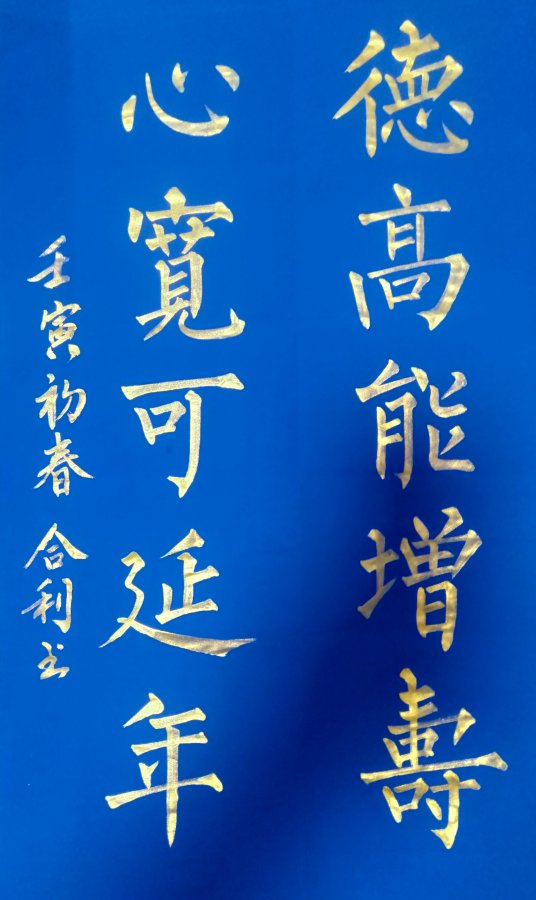 德高能增壽
心寬可延年
壬寅初春 合利书